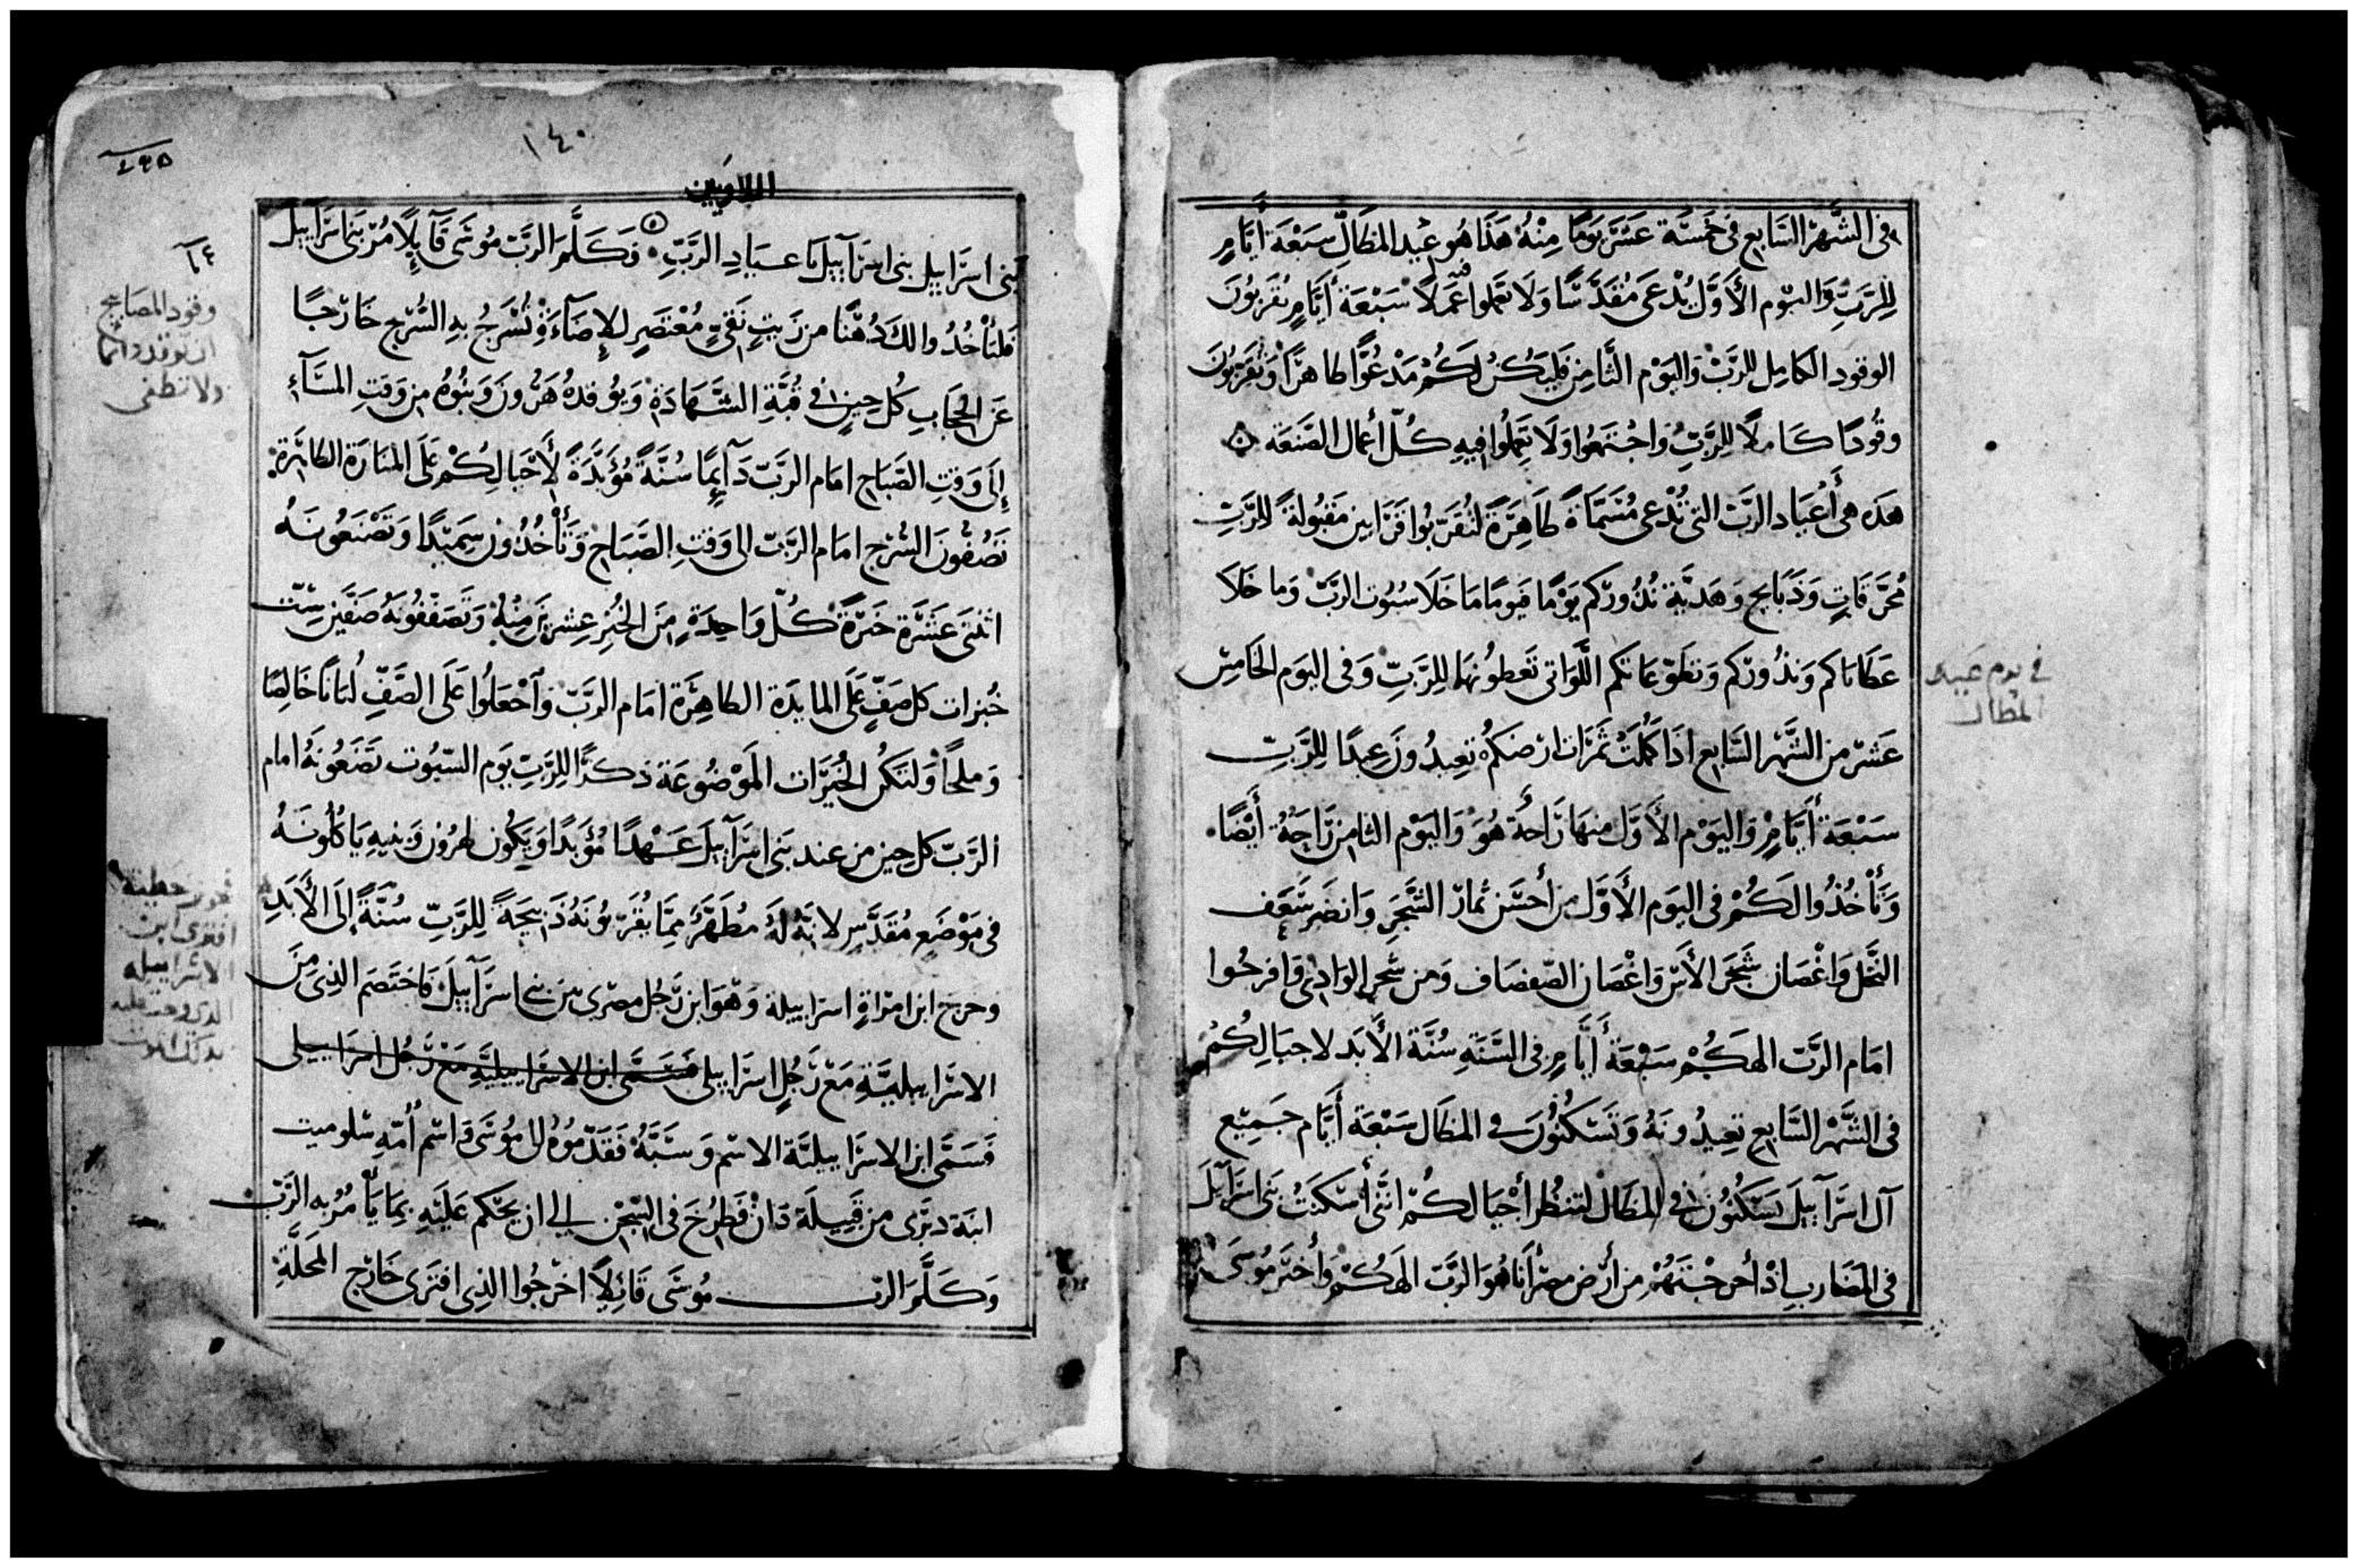 فى الشَّهْر السَّابع فى خمسَّة عشَرَ يَومًا مِنْهُ هَذَا هُو عْيد المظَالِّ سَبْعَة أيَّامٍ
لِلرَّبِّ وَاليَوْم الأوَّل يُدْعَى مُقَدَّسًا وَلَا تَعملوا فيه عَمَلًا سَبْعَة أيَّامٍ تُقرّبُونَ
الوقود الكامِل للرَّبّ وَاليَوْم الثَّامِن فَليَكُنْ لَكُمْ مَدْعُوًّا طاهرًا وَتُقَرّبُونَ
وقُودًا كَاملًا لِلرَّبِّ وَاجْتمعُوا وَلَا تَعملُوا فيهِ كُلّ أعمال الصَّنعَة
هَذه هى أعْيَاد الرَّبّ التى تُدْعى مُسَمَّاة طَاهِرَةً لتُقَرّبُوا قَرَابين مَقبُولةً لِلرَّبِّ
مُحرَّقَاتٍ وَذَبَايح وَهَديَّة نُذُورَكم يَوْمًا فيومًا مَا خَلَا سُبُوت الرَّبّ وَما خَلَا
عَطَايَاكم وَنذُورَكم وَتطوّعَاتكم اللَّوَاتى تَعطونهَا لِلرَّبِّ وَفى اليَوم الخَامِس
عَشَر من الشَّهْر السَّابع اذَا كَمُلَتْ ثمَرَات ارْضكمْ تعِيدُونَ عيدًا لِلرَّبِّ
سَبْعَة أيَّامٍ وَاليَوْم الأَوَّل منهَا رَاحةٌ هُوَ وَاليَوْم الثامن رَاحَةٌ أيْضًا
وَتَأْخُذُوا لَكُمْ فى اليَوم الأَوَّل من أحْسَن ثمارَ الشَّجَرِ وَانضَر سَعَف
النَّخل وَاغْصَان شَجَر الأسّ وَاغْصَان الصّفصَاف وَمن شجر الوَادِى وَافرحُوا
امَام الرَّبّ الهكُمْ سَبْعَة أيَّامٍ فى السَّنَةِ سُنَّة الأَبَد لاجيَالِكُمْ
فى الشَّهْر السَّابع تعِيدُونَهُ وَتَسْكُنُونَ فى المظَال سَبْعَة أيَّام جَمِيْع
آل اسرَآييل يَسْكُنُونَ فى المظال لتنظُر أجْيَالكُمْ انَّنى أسْكنتُ بَنى اسرَآيل
فى المضَارب اذْ أخرجْتهُمْ من أرْض مصْر أنَا هُوَ الرَّبّ الهكُمْ وَأخبَر مُوسَى
فى يوم عيد
المظال
١٤٠
اللاويين
بنى اسرَاييل بنى اسرَآييل بَاعيَادِ الرَّبِّ وَكَلَّمَ الرَّبّ مُوسَى قَآيِلًا مُرْ بنى اسرَآييل
فَليَأْخُذُوا لكَ دُهْنًا من زَيتٍ نَقىٍّ مُعْتَصَرٍ للإضَآءَةِ تُسْرَجُ بهِ السُّرُج خَارْجًا
عَن الحجَابِ كُل حِينٍ فى قُبَّةِ الشَّهَادَةِ وَيُوقدهُ هَرُونَ وَبنُوهُ من وَقتِ المسَآءِ
إلَى وَقتِ الصَّبَاحِ امَام الرَّبّ دَآيِمًا سُنَّةً مُؤَبَّدَةً لأَجيَالِكُمْ عَلَى المنَارَة الطَاهرَة
تَصُفُّونَ السُّرُج امَام الرَّبّ الى وَقتِ الصَّبَاح وَتَأْخُذُون سَمِيْدًا وَتَصْنعُونَهُ
اثنتى عَشرَة خبزَةً كُلّ وَاحِدَةٍ منَ الخُبْزِ عِشرِينَ مِنْهُ وَتَصفّفُونَهُ صَفَّين سِتّ
خُبزات كل صَفٍّ عَلَى المايدَة الطاهِرَة امَام الرَّبّ وَآجْعَلُوا عَلَى الصَّفِّ لُبَانًا خَالِصًا
وَملحًا وَلتَكُن الخُبزَات المَوْضُوعَة ذكرًا لِلرَّبِّ يَوم السّبُوت تَضَعُونَهُ امام
الرَّبّ كل حين من عند بَنى اسرَآييل عَهْدًا مُؤبَدًا وَيَكُون لهرُون وَبنيهِ يَاكُلُونَهُ
فى مَوْضَعٍ مُقَدَّسٍ لانَّهُ لَهُ مُطَهَّرٌ ممَّا يُقَرّبُونَهُ ذَبيحَةً لِلرَّبِّ سُنَّةً إلَى الأَبَدِ
وخرج ابن امرَاةٍ اسرَاييلة وَهْوَ ابن رَجُل مصْرى من بنى اسرَآييل فَاختَصَم الذِى منَ
الاسرَاييليَّةِ مَعْ رَجُلٍ اسرَاييلى فَسَمَّى ابن الاسرَاييليَّةِ مَعْ رَجُل اسرَاييلى
فَسَمَّى ابن الاسرَاييليَّة الاسْم وَسَبَّهُ فَقَدّمُوهُ الى مُوسَى وَاسْم أُمّهِ سْلوميت
ابنَة دبرَى من قَبِيلَة دَانْ فَطَرُحَ فى السّجْن الى ان يُحْكم عَلَيْهِ بمَا يَأمُرُ به الرَّبّ
وَكَلَّمَ الربّ مُوسَى قَائِلًا اخرجُوا الذِى افترَى خَارْج المَحَلَّةِ
وقود المصابيح
ان توقد دائما
ولا تطفى
افترى ابن
الاسراييليه